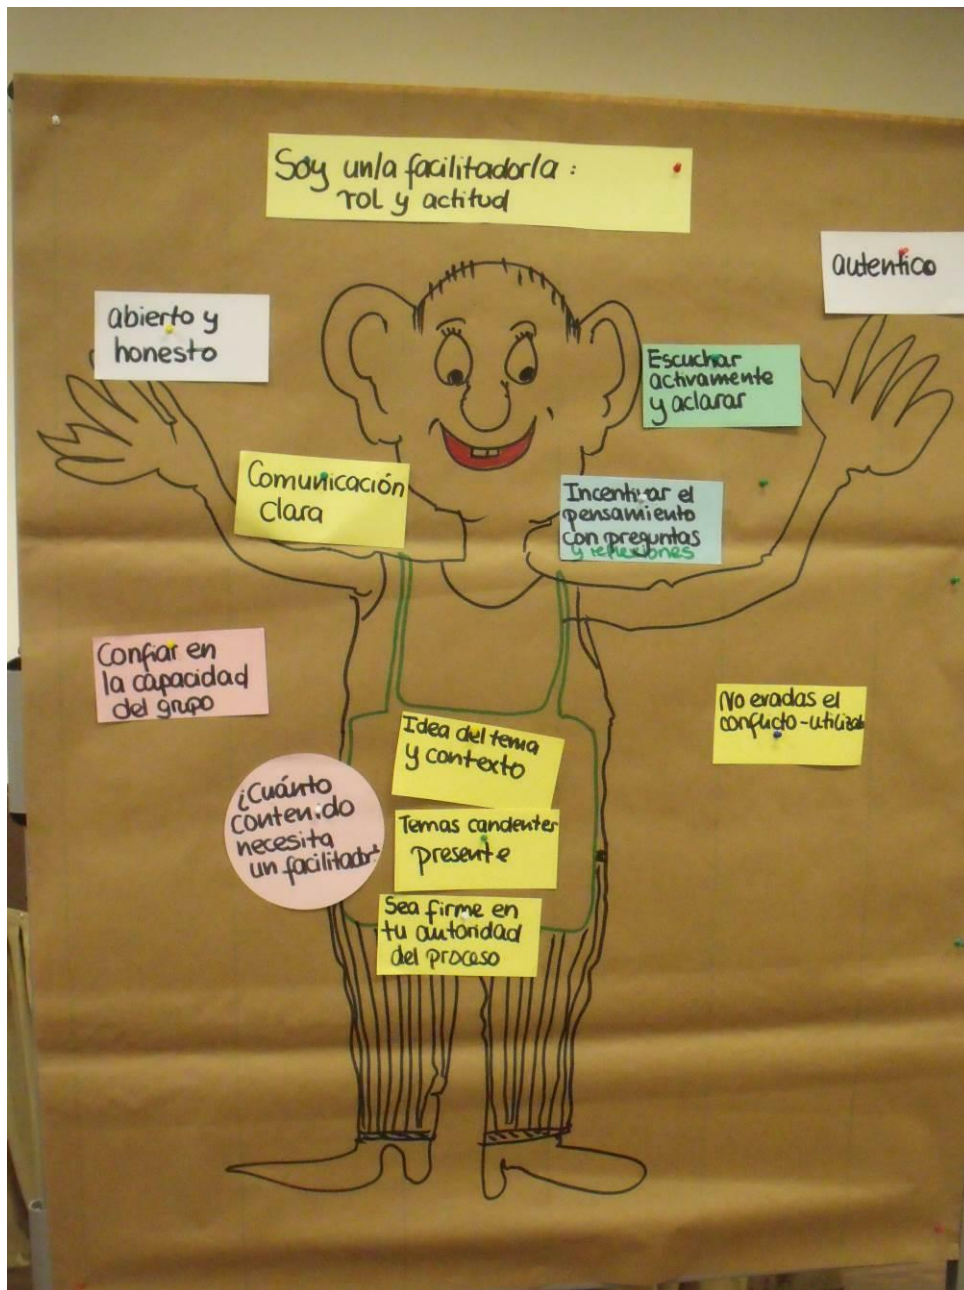 Soy un/a facilitador/a:
rol y actitud
autentico
abierto y
honesto
Escuchar
activamente
y aclarar
Comunicación
clara
Incentivar el
pensamiento
con preguntas
y reflexiones
Confiar en
la capacidad
del grupo
No evadas el
conflicto-utilizalo
Idea del tema
y contexto
¿Cuánto
contenido
necesita
un facilitador?
Temas candentes
presente
Sea firme en
tu autoridad
del proceso